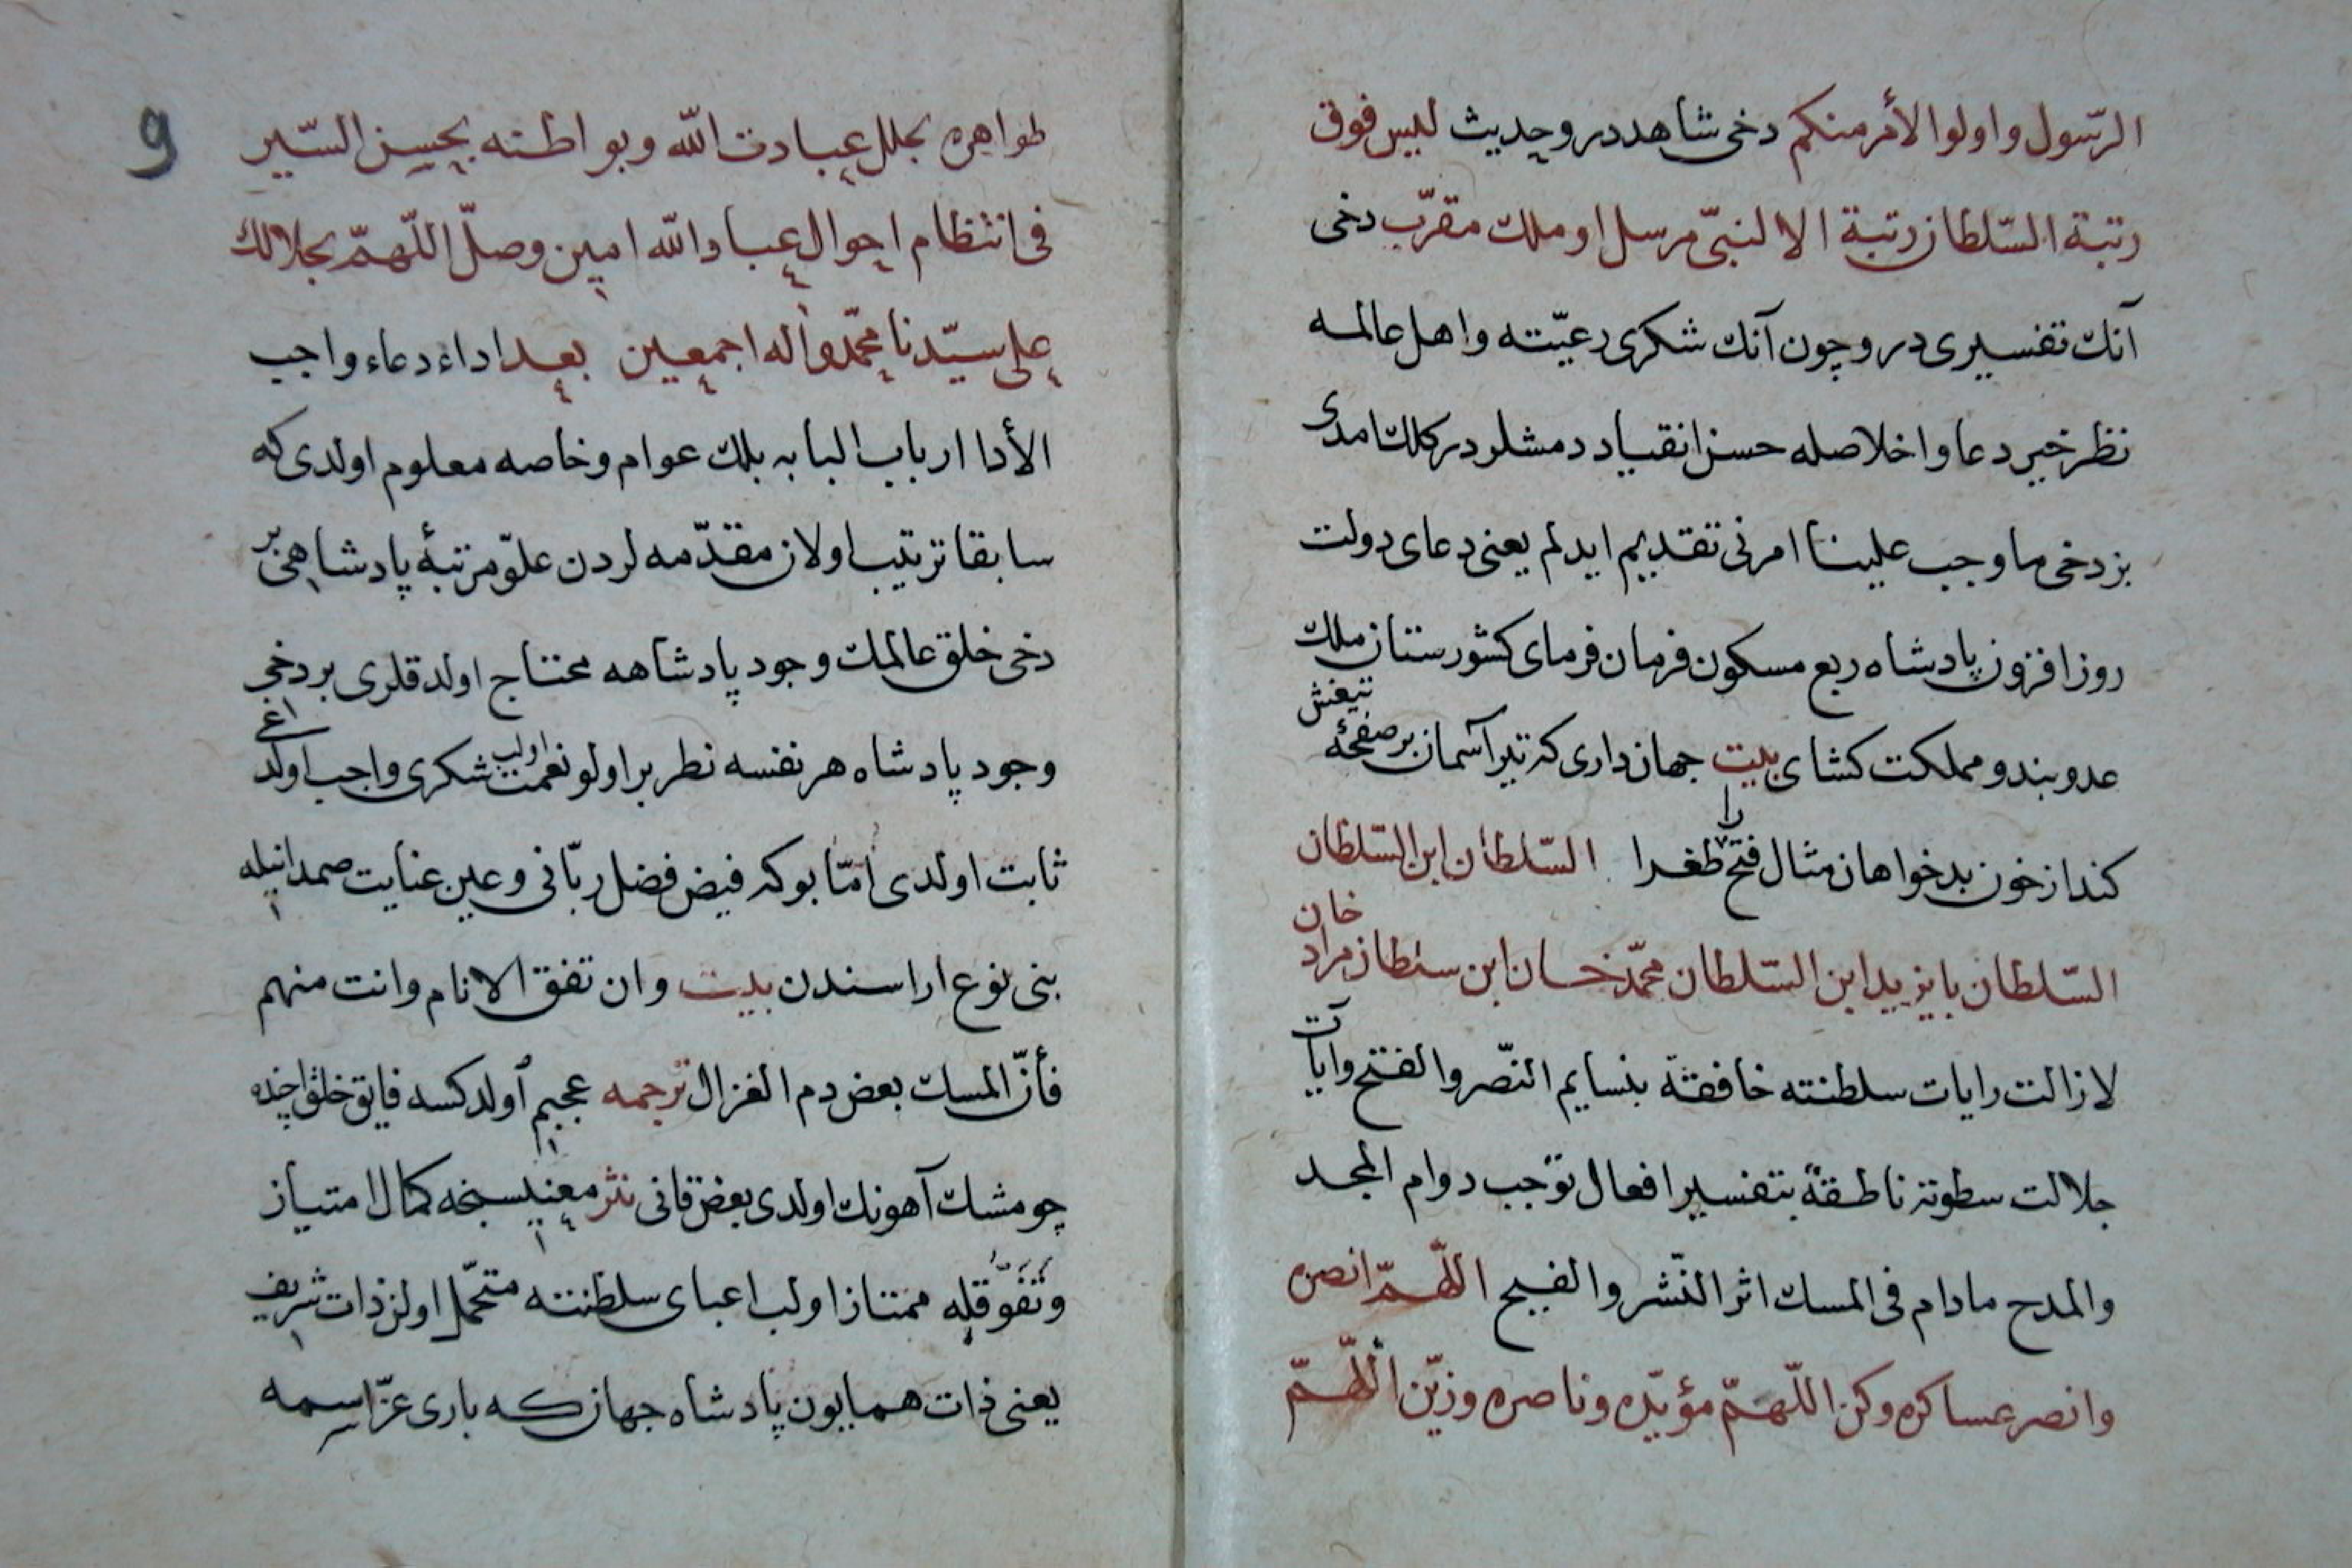 الرّسول واولوا الأمر منكم دخی شاهددر وحدیث لیس فوق
رتبة السّلطان رتبة الا لنبىّ مرسل او ملك مقرّب دخی
آنك تفسیری در و چون آنك شكری رعیّته واهل عالمه
نظر خیر دعا و اخلاصله حسن انقیاد دمشلردر كلك امدی
بز دخی ما وجب علینا امرنی تقدیم ایدلم یعنی دعای دولت
روز افزون پادشاه ربع مسكون فرمان فرمای كشورستان ملك
عدوبند و مملكت كشای بیت جهان داری كه تیر آسمان بر صفحۀ تیغش
كند از خون بدخواهان مثال فتح را طغرا السّلطان ابن السّلطان
السّلطان بایزید ابن السّلطان محمّد خان ابن سلطان مراد خان
لازالت رایات سلطنته خافقة بنسایم النّصر والفتح وآیات
جلالت سطوته ناطقة بتفسیر افعال توجب دوام المجد
والمدح مادام فی المسك اثر النّشر والفیح اللّهمّ انصره
وانصر عساكره وكن اللّهمّ مؤیّده وناصره وزیّن اللّهمّ
9
ظواهره بحلل عبادت اللّه وبواطنه بحسن السّیر
فی انتظام احوال عباد اللّه امین وصلّ اللّهمّ بجلالك
علی سیّدنا محمّد واله اجمعین بعد اداء دعاء واجب
الأدا ارباب البابه بلك عوام وخاصه معلوم اولدی كه
سابقا ترتیب اولان مقدّمه لردن علوّ مرتبۀ پادشاهی بر
دخی خلق عالمك وجود پادشاهه محتاج اولدقلری بر دخی
وجود پادشاه هر نفسه نظر بر اولو نعمت اولیب شكری واجب اولدغی
ثابت اولدی امّا بوكه فیض فضل ربّانی وعین عنایت صمدانیله
بنی نوع اراسندن بیت وان تفق الانام وانت منهم
فأنّ المسك بعض دم الغزال ترجمه عجبم اولدكسه فایق خلق اچنده
چو مشك آهونك اولدی بعض قانی نثر معنیسنجه كمال امتیاز
وتفوّقله ممتاز اولب اعبای سلطنته متحمّل اولن ذات شریف
یعنی ذات همایون پادشاه جهان كه باری عزّ اسمه